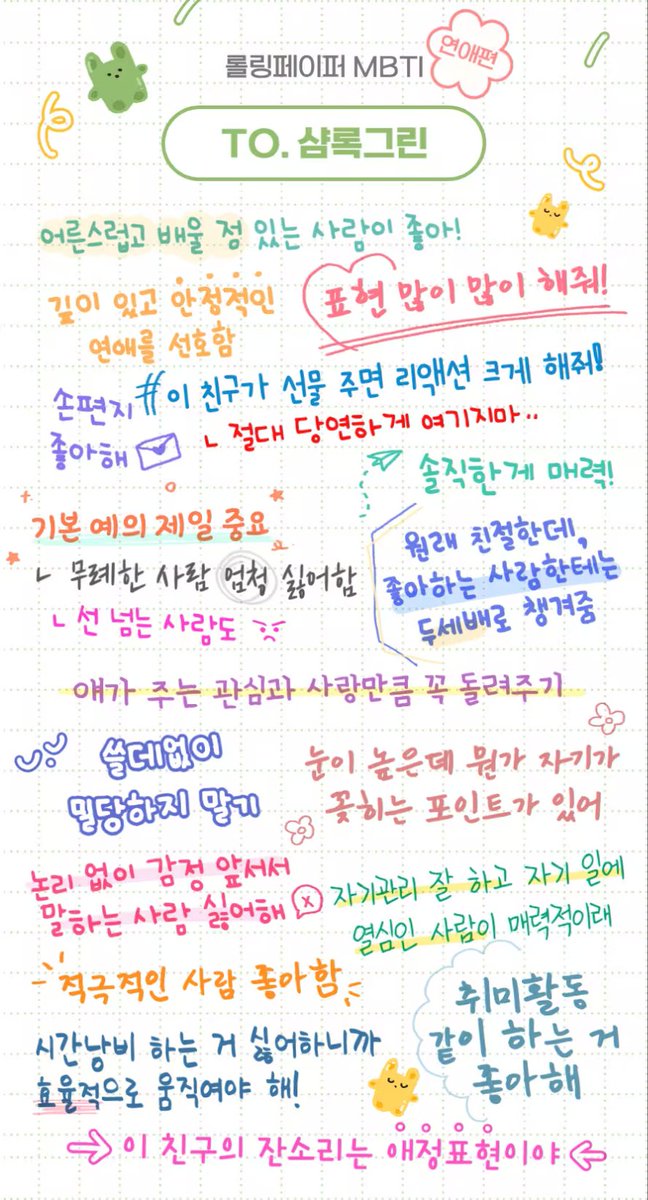 롤링페이퍼 MBTI
연애편
TO. 샴록그린
어른스럽고 배울 점 있는 사람이 좋아!
깊이 있고 안정적인
연애를 선호함
표현 많이 많이 해줘!
손편지
좋아해
#이 친구가 선물 주면 리액션 크게 해줘!
ㄴ 절대 당연하게 여기지마..
솔직한게 매력!
기본 예의 제일 중요
ㄴ 무례한 사람 엄청 싫어함
ㄴ 선 넘는 사람도
원래 친절한데,
좋아하는 사람한테는
두세배로 챙겨줌
얘가 주는 관심과 사랑만큼 꼭 돌려주기
쓸데없이
밀당하지 말기
눈이 높은데 뭔가 자기가
꽂히는 포인트가 있어
논리 없이 감정 앞서서
말하는 사람 싫어해
x
자기관리 잘 하고 자기 일에
열심인 사람이 매력적이래
적극적인 사람 좋아함
취미활동
같이 하는 거
좋아해
시간낭비 하는 거 싫어하니까
효율적으로 움직여야 해!
이 친구의 잔소리는 애정표현이야